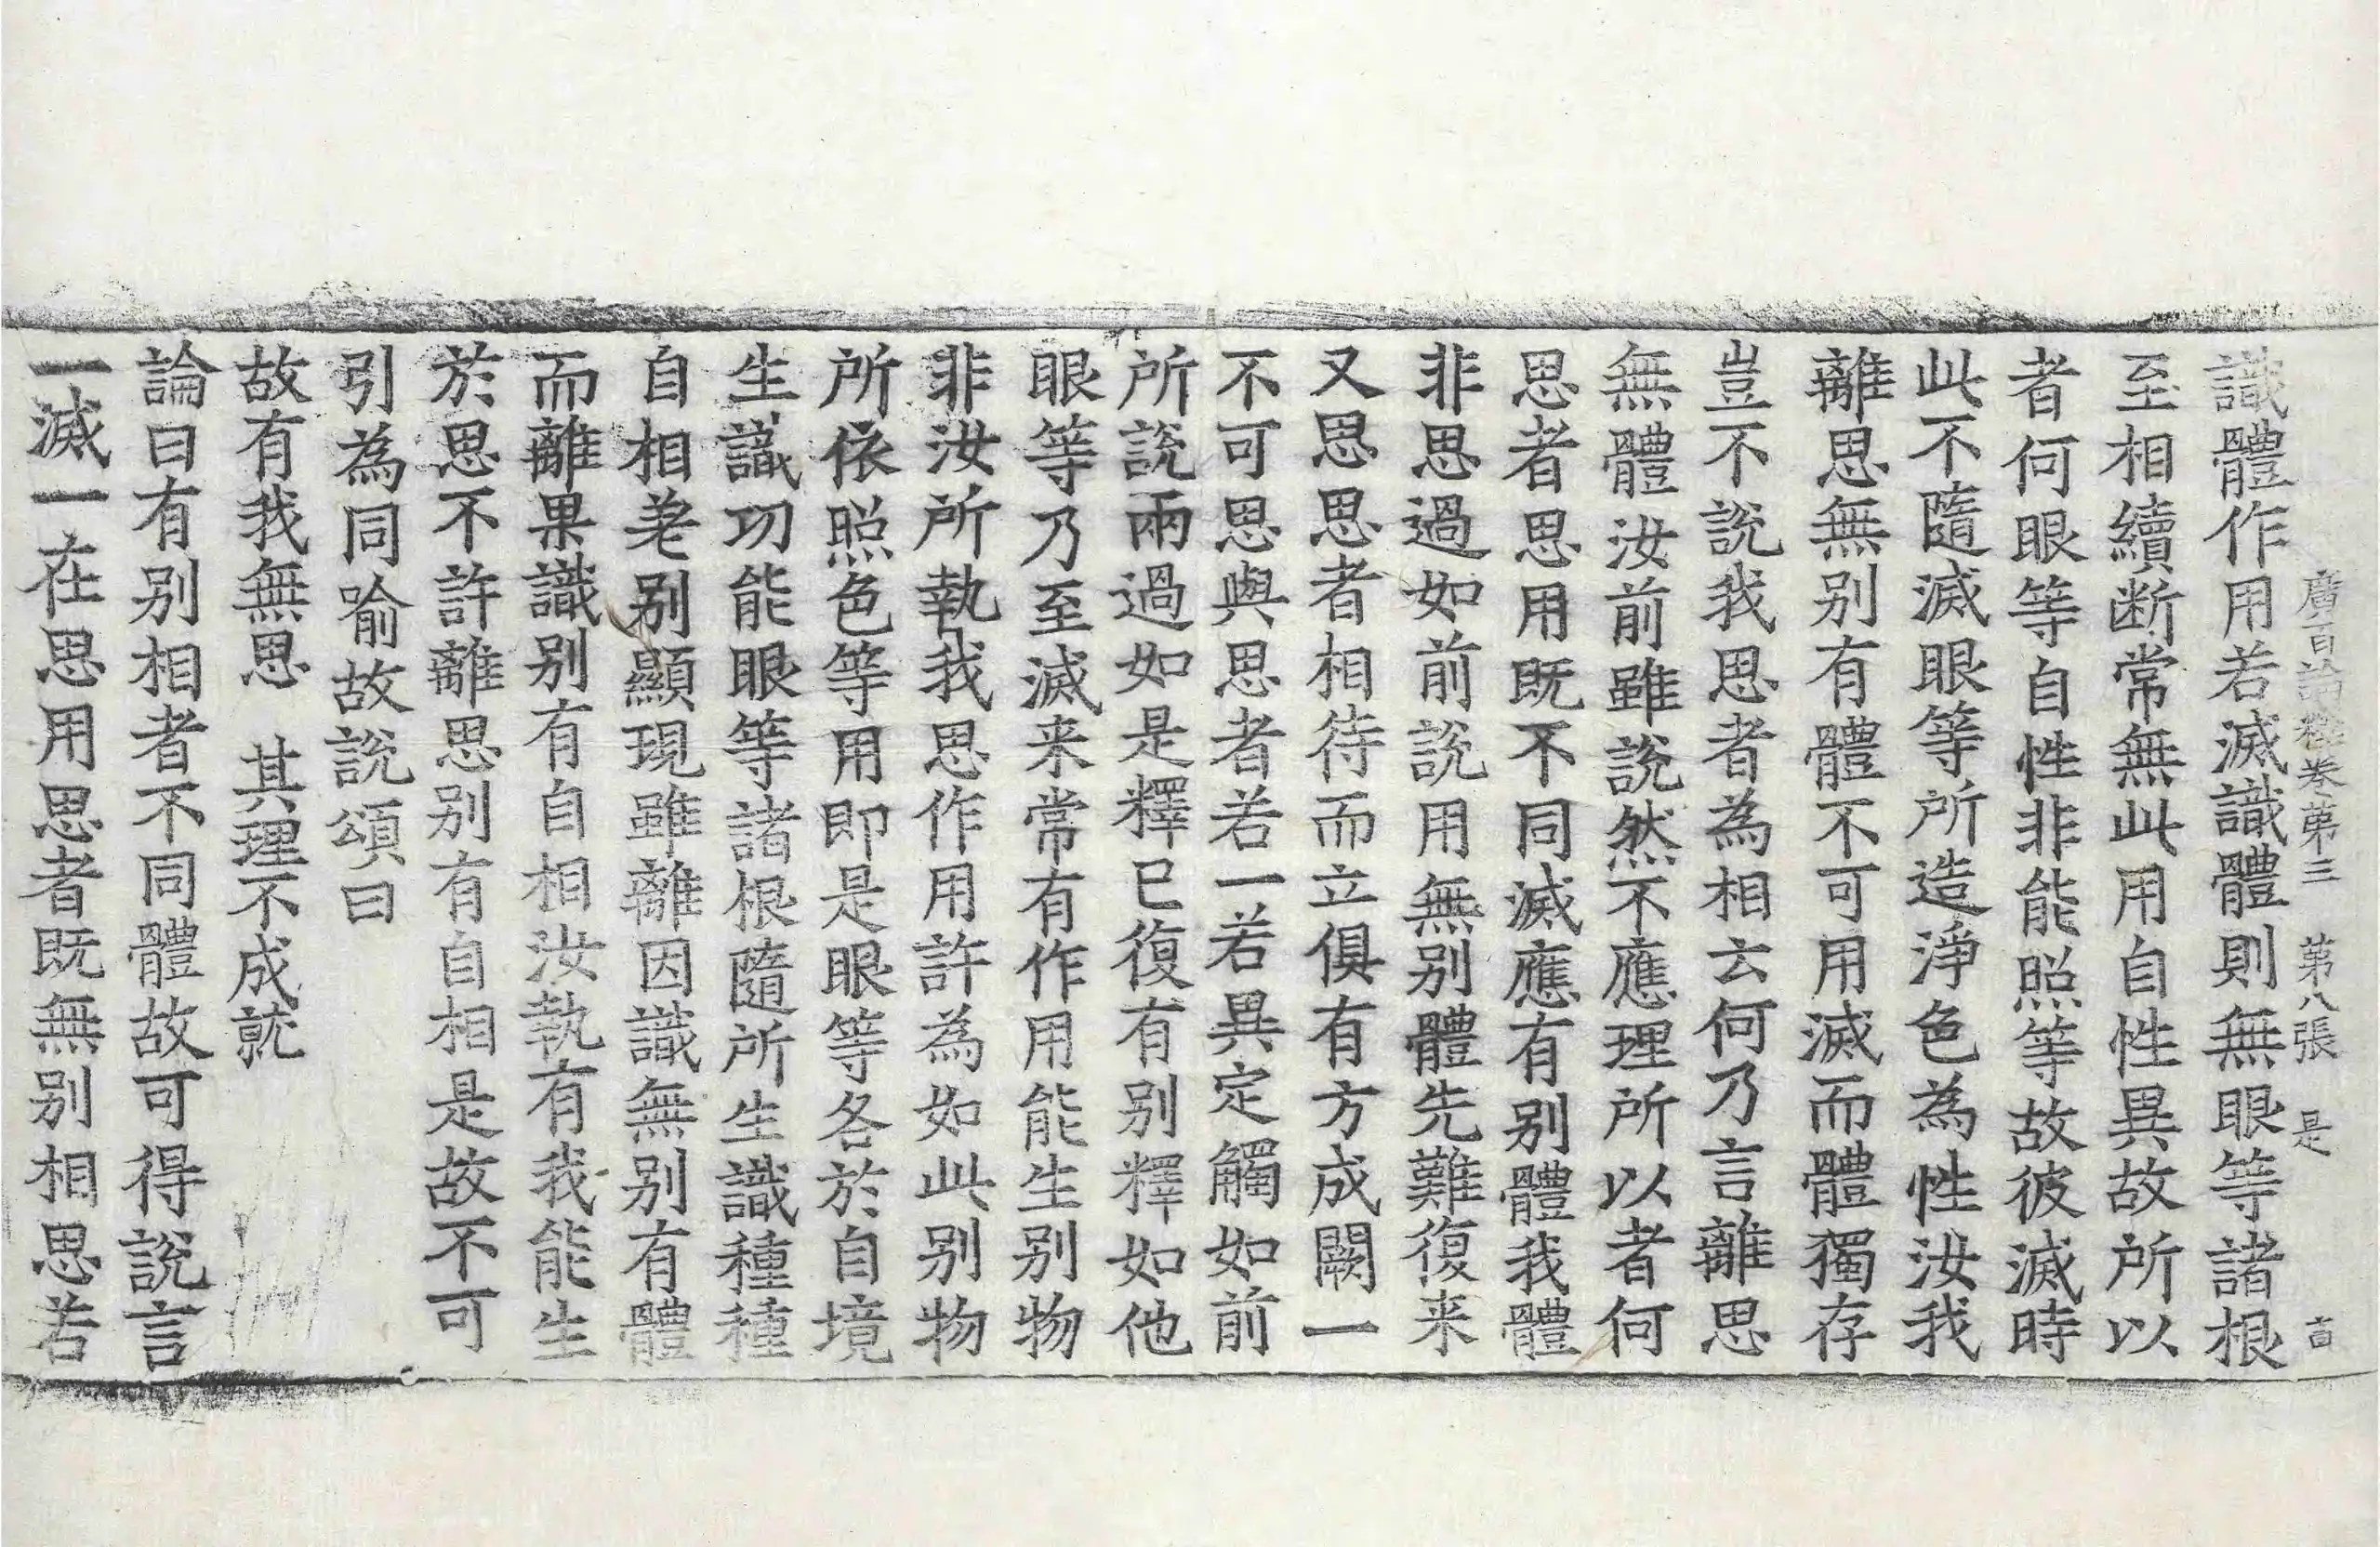 廣百論釋卷第三 第八張 是
識體作用若滅識體則無眼等諸根
至相續斷常無此用自性異故所以
者何眼等自性非能照等故彼滅時
此不隨滅眼等所造淨色為性汝我
離思無別有體不可用滅而體獨存
豈不說我思者為相云何乃言離思
無體汝前雖說然不應理所以者何
思者思用既不同滅應有別體我體
非思過如前說用無別體先難復来
又思思者相待而立俱有方成闕一
不可思與思者若一若異定觸如前
所說兩過如是釋已復有別釋如他
眼等乃至滅来常有作用能生別物
非汝所執我思作用許為如此別物
所依照色等用即是眼等各於自境
生識功能眼等諸根隨所生識種種
自相差別顯現雖離因識無別有體
而離果識別有自相汝執有我能生
於思不許離思別有自相是故不可
引為同喻故說頌曰
故有我無思 其理不成就
論曰有別相者不同體故可得說言
一滅一在思用思者既無別相思若